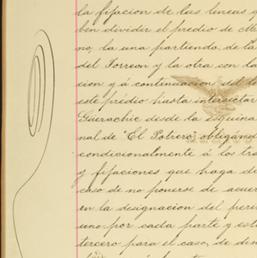 la fijacion de las lineas q
ben dividir el predio de Ma
no, la una partiendo de la
del Torreon y la otra con la
cion y á continuacion del lo
este prédio hasta intersectar
Guerachic desde la esquina
nal de "El Potrero" obligand
condicionalmente á los tra
y fijaciones que haga de
caso de no ponerse de acuer
en la designacion del peri
uno por cada parte y este
tercero para el caso, de dis